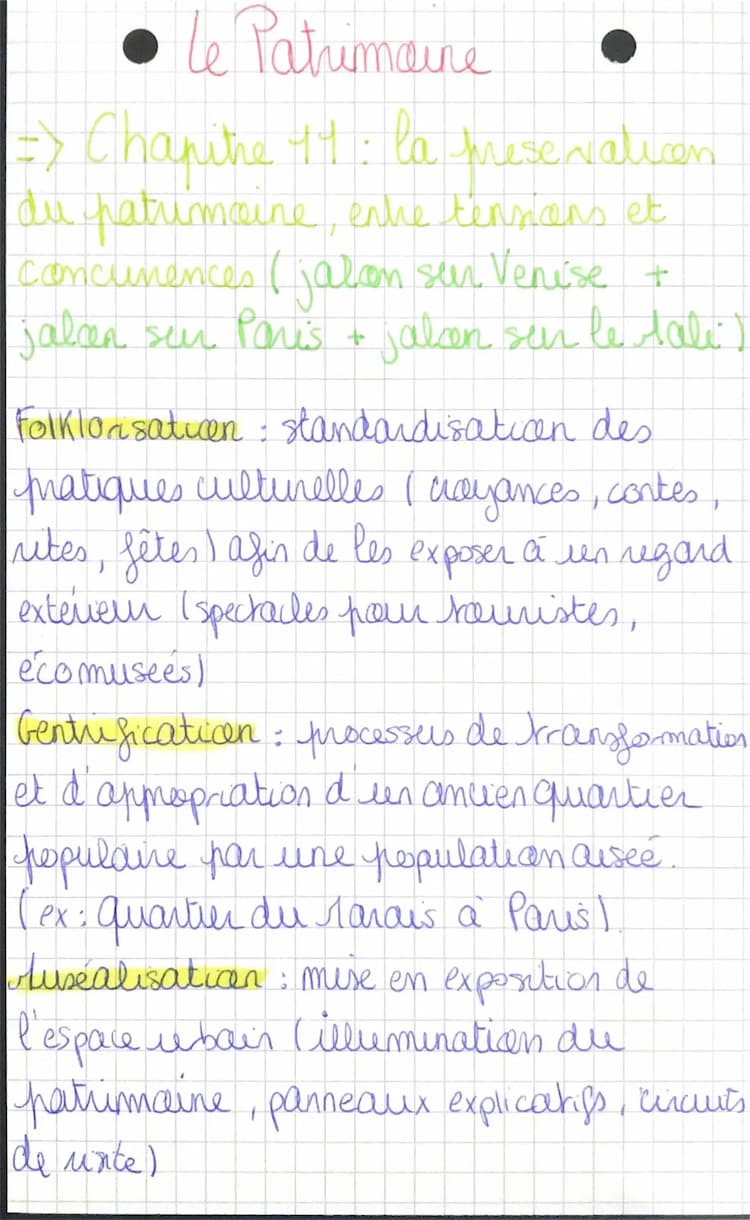 Le Patrimoine
=> Chapitre 11 : la preservation
du patrimoine, entre tensions et
concurrences (jalon sur Venise +
jalon sur Paris + jalon sur le Mali)
Folklorisation : standardisation des
pratiques culturelles (croyances, contes,
rites, fêtes) afin de les exposer à un regard
extérieur (spectacles pour touristes,
écomusées)
Gentrification : processus de transformation
et d'appropriation d'un ancien quartier
populaire par une population aisée.
(ex : quartier du Marais à Paris).
Muséalisation : mise en exposition de
l'espace urbain (illumination du
patrimoine, panneaux explicatifs, circuits
de visite)